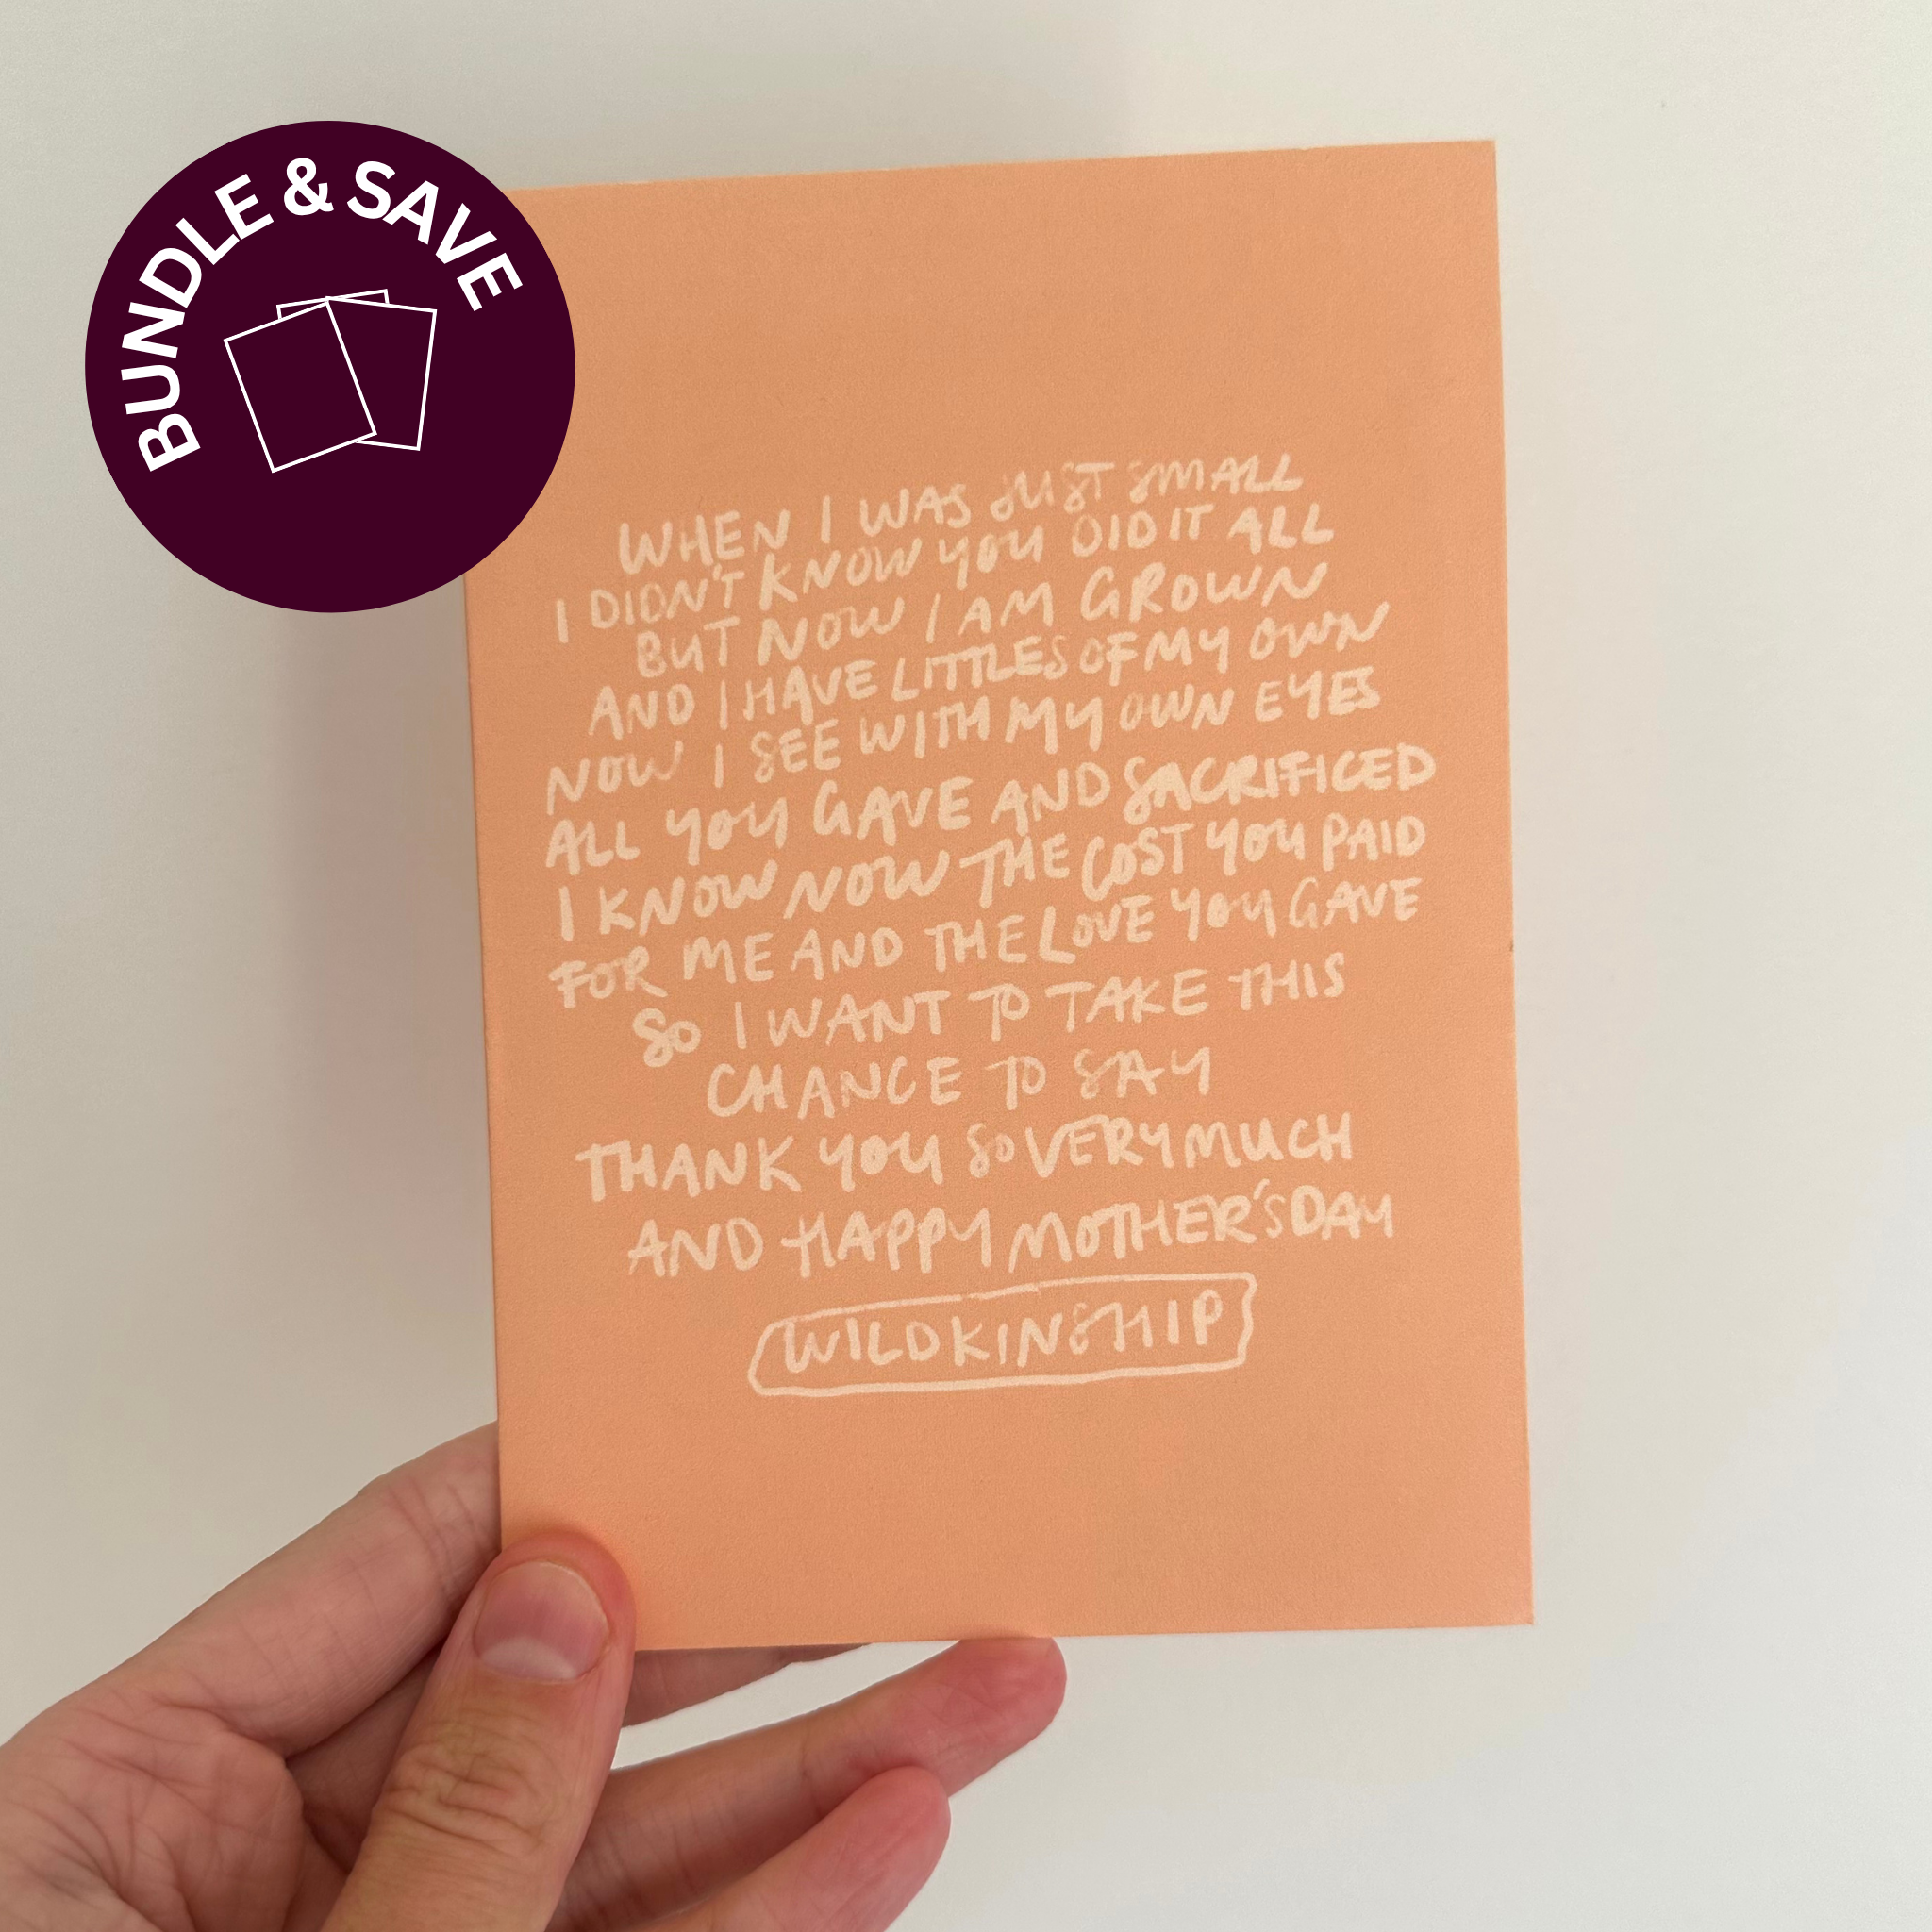 BUNDLE & SAVE
WHEN I WAS JUST SMALL
I DIDN'T KNOW YOU DID IT ALL
BUT NOW I AM GROWN
AND I HAVE LITTLES OF MY OWN
NOW I SEE WITH MY OWN EYES
ALL YOU GAVE AND SACRIFICED
I KNOW NOW THE COST YOU PAID
FOR ME AND THE LOVE YOU GAVE
SO I WANT TO TAKE THIS
CHANCE TO SAY
THANK YOU SO VERY MUCH
AND HAPPY MOTHER'S DAY
WILDKINSHIP